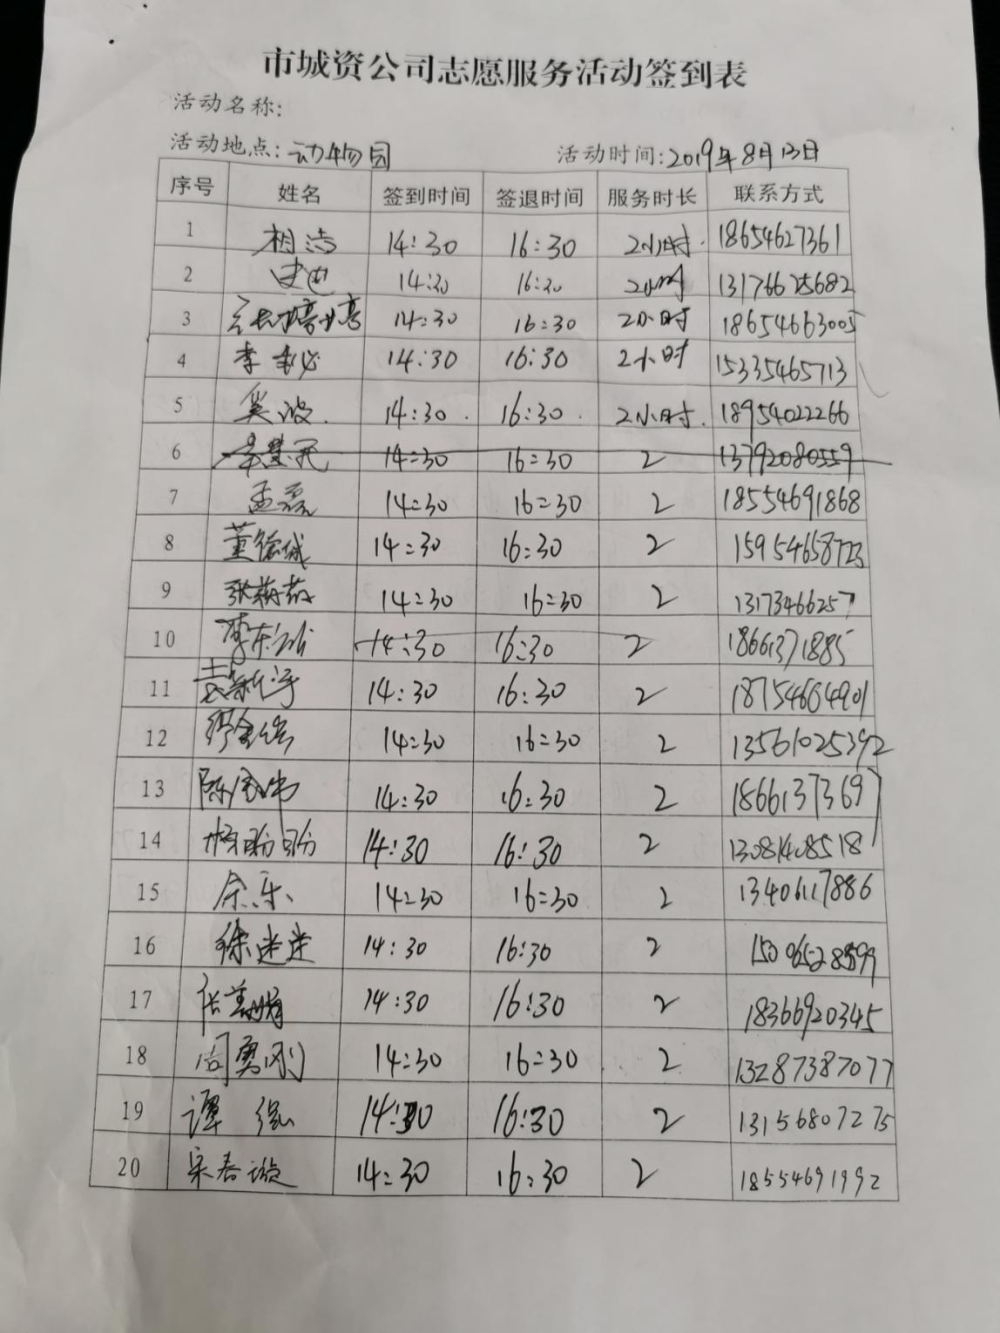 市城资公司志愿服务活动签到表
活动名称:
活动地点: 动物园 活动时间: 2019年8月13日
序号 姓名 签到时间 签退时间 服务时长 联系方式
1 相浩 14:30 16:30 2小时. 18654627361
2 14:30 16:30 2小时 13176625682
3 14:30 16:30 2小时 18654663005
4 李 14:30 16:30 2小时 15335465713
5 吴波 14:30 16:30 2小时. 18954022266
6 14:30 16:30 2 13792080559
7 孟磊 14:30 16:30 2 18554691868
8 董 14:30 16:30 2 15954658723
9 张 14:30 16:30 2 13173466257
10 李 14:30 16:30 2 18661371885
11 袁 14:30 16:30 2 18754664901
12 14:30 16:30 2 13561025392
13 陈 14:30 16:30 2 18661373697
14 杨盼盼 14:30 16:30 2 13081408518
15 余乐 14:30 16:30 2 13406117886
16 徐迷迷 14:30 16:30 2
17 张 14:30 16:30 2 18366920345
18 周勇刚 14:30 16:30 2 13287387077
19 谭 14:30 16:30 2 13156807275
20 宋春 14:30 16:30 2 18554691992